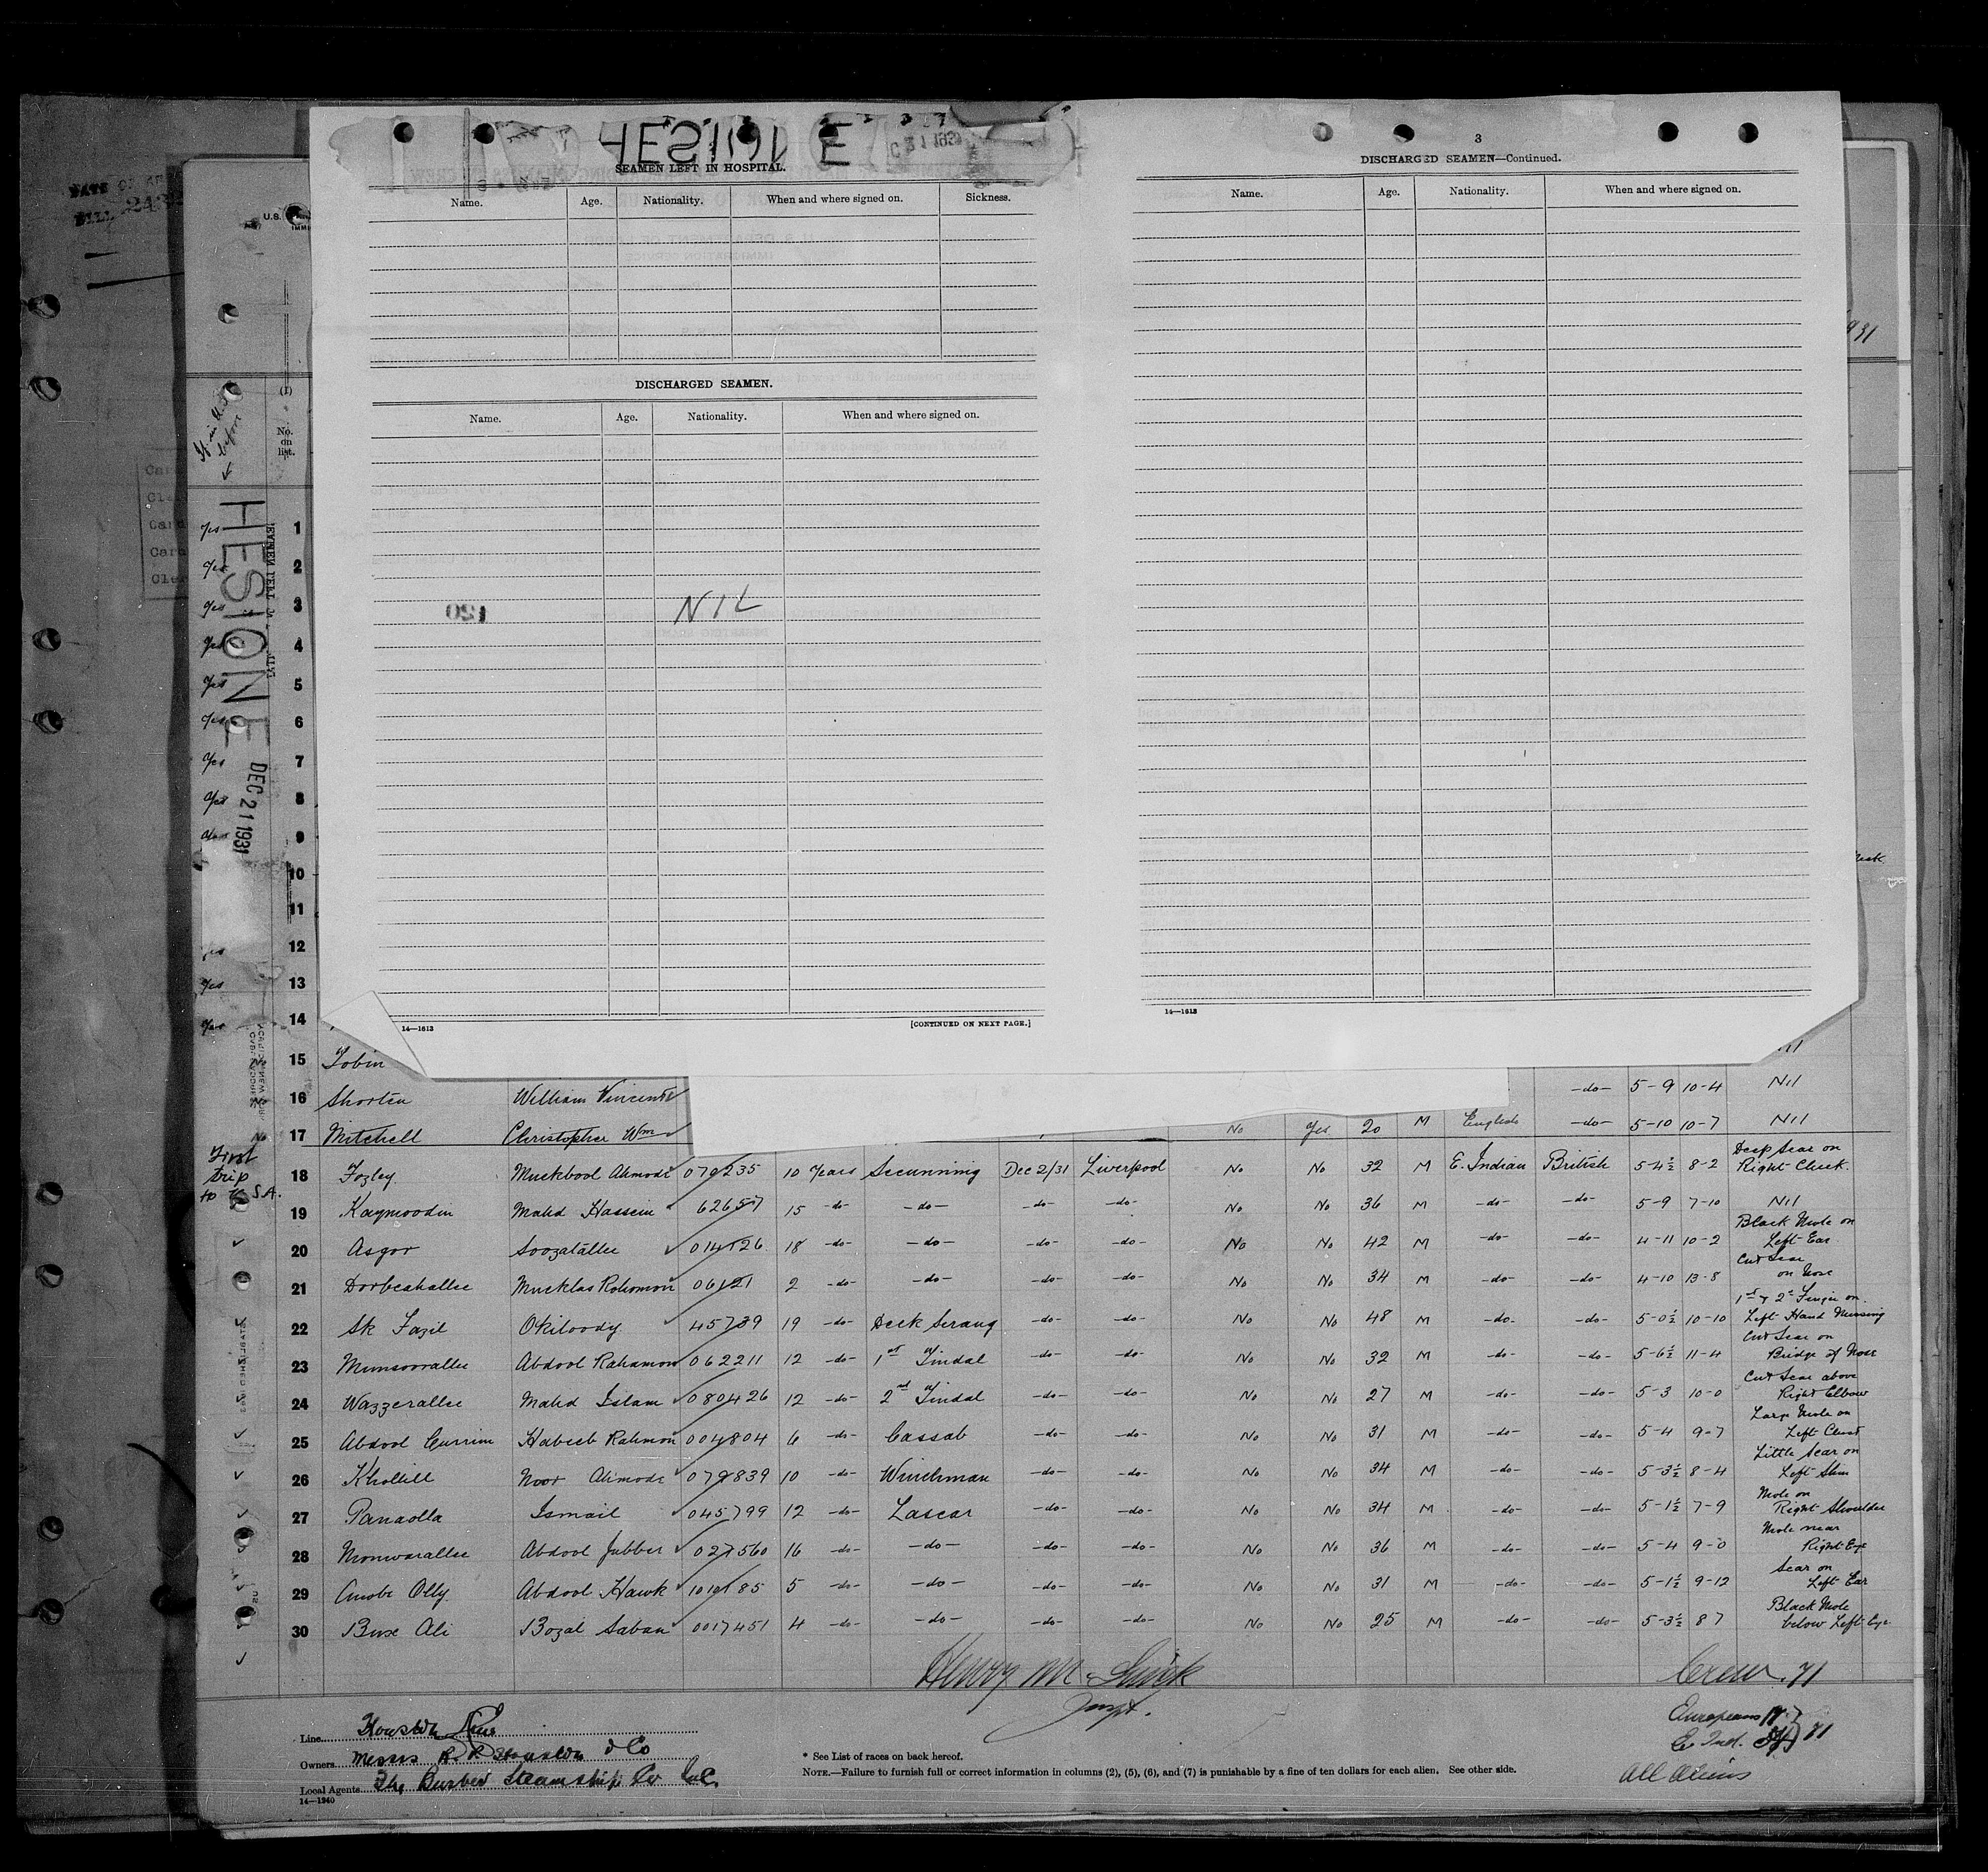 HESIONE
DEC 21 1931
SEAMEN LEFT IN HOSPITAL.
Name. Age. Nationality. When and where signed on. Sickness.
DISCHARGED SEAMEN.
Name. Age. Nationality. When and where signed on.
NIL
14—1613 [CONTINUED ON NEXT PAGE.]
3
DISCHARGED SEAMEN—Continued.
Name. Age. Nationality. When and where signed on.
14—1613
U.S.
(1)
No.
on
list.
HESIONE
DEC 21 1931
Yes 1
Yes 2
Yes 3
Yes 4
Yes 5
Yes 6
Yes 7
Yes 8
9
10
11
Yes 12
Yes 13
Yes 14
15 Tobin
16 Shorten William Vincent -do- 5-9 10-4 Nil
17 Mitchell Christopher Wm No Yes 20 M English -do- 5-10 10-7 Nil
First
trip
to U.S.A.
18 Fozley Muckbool Ahmode 079235 10 Years Secunning Dec 2/31 Liverpool No No 32 M E. Indian British 5-4½ 8-2 Deep Scar on Right Cheek.
19 Kaymoodin Mahd Hassein 62657 15 -do- -do- -do- -do- No No 36 M -do- -do- 5-9 7-10 Nil
20 Asgor Soozatallee 014126 18 -do- -do- -do- -do- No No 42 M -do- -do- 4-11 10-2 Black Mole on Left Ear
21 Dorbeshallee Mucklas Rohomon 06121 2 -do- -do- -do- -do- No No 34 M -do- -do- 4-10 13-8 Cut Scar on Nose
22 Sk Fazil Okiloody 45739 19 -do- Deck Serang -do- -do- No No 48 M -do- -do- 5-0½ 10-10 1st & 2d Finger on Left Hand Missing
23 Munsoorallee Abdool Rahamon 062211 12 -do- 1st Tindal -do- -do- No No 32 M -do- -do- 5-6½ 11-4 Cut Scar on Bridge of Nose
24 Wazzerallee Mahd Islam 080426 12 -do- 2nd Tindal -do- -do- No No 27 M -do- -do- 5-3 10-0 Cut Scar above Right Elbow
25 Abdool Currim Habeeb Rahmon 004804 6 -do- Cassab -do- -do- No No 31 M -do- -do- 5-4 9-7 Large Mole on Left Chest
26 Kholill Noor Ahmode 079839 10 -do- Winchman -do- -do- No No 34 M -do- -do- 5-3½ 8-4 Little Scar on Left Shin
27 Panaolla Ismail 045799 12 -do- Lascar -do- -do- No No 34 M -do- -do- 5-1½ 7-9 Mole on Right Shoulder
28 Monwarallee Abdool Jubber 027560 16 -do- -do- -do- -do- No No 36 M -do- -do- 5-4 9-0 Mole near Right Eye
29 Amobe Olly Abdool Hawk 101985 5 -do- -do- -do- -do- No No 31 M -do- -do- 5-1½ 9-12 Scar on Left Ear
30 Buse Ali Bozal Saban 0017451 4 -do- -do- -do- -do- No No 25 M -do- -do- 5-3½ 8 7 Black Mole below Left Eye
Henry M.
Crew. 71
Line Houston Line
Owners Messrs R. P. Houston & Co
Local Agents The Steamship Co Inc.
14—1240
* See List of races on back hereof.
NOTE.—Failure to furnish full or correct information in columns (2), (5), (6), and (7) is punishable by a fine of ten dollars for each alien. See other side.
Europeans 17
E. Ind. 71
All Aliens